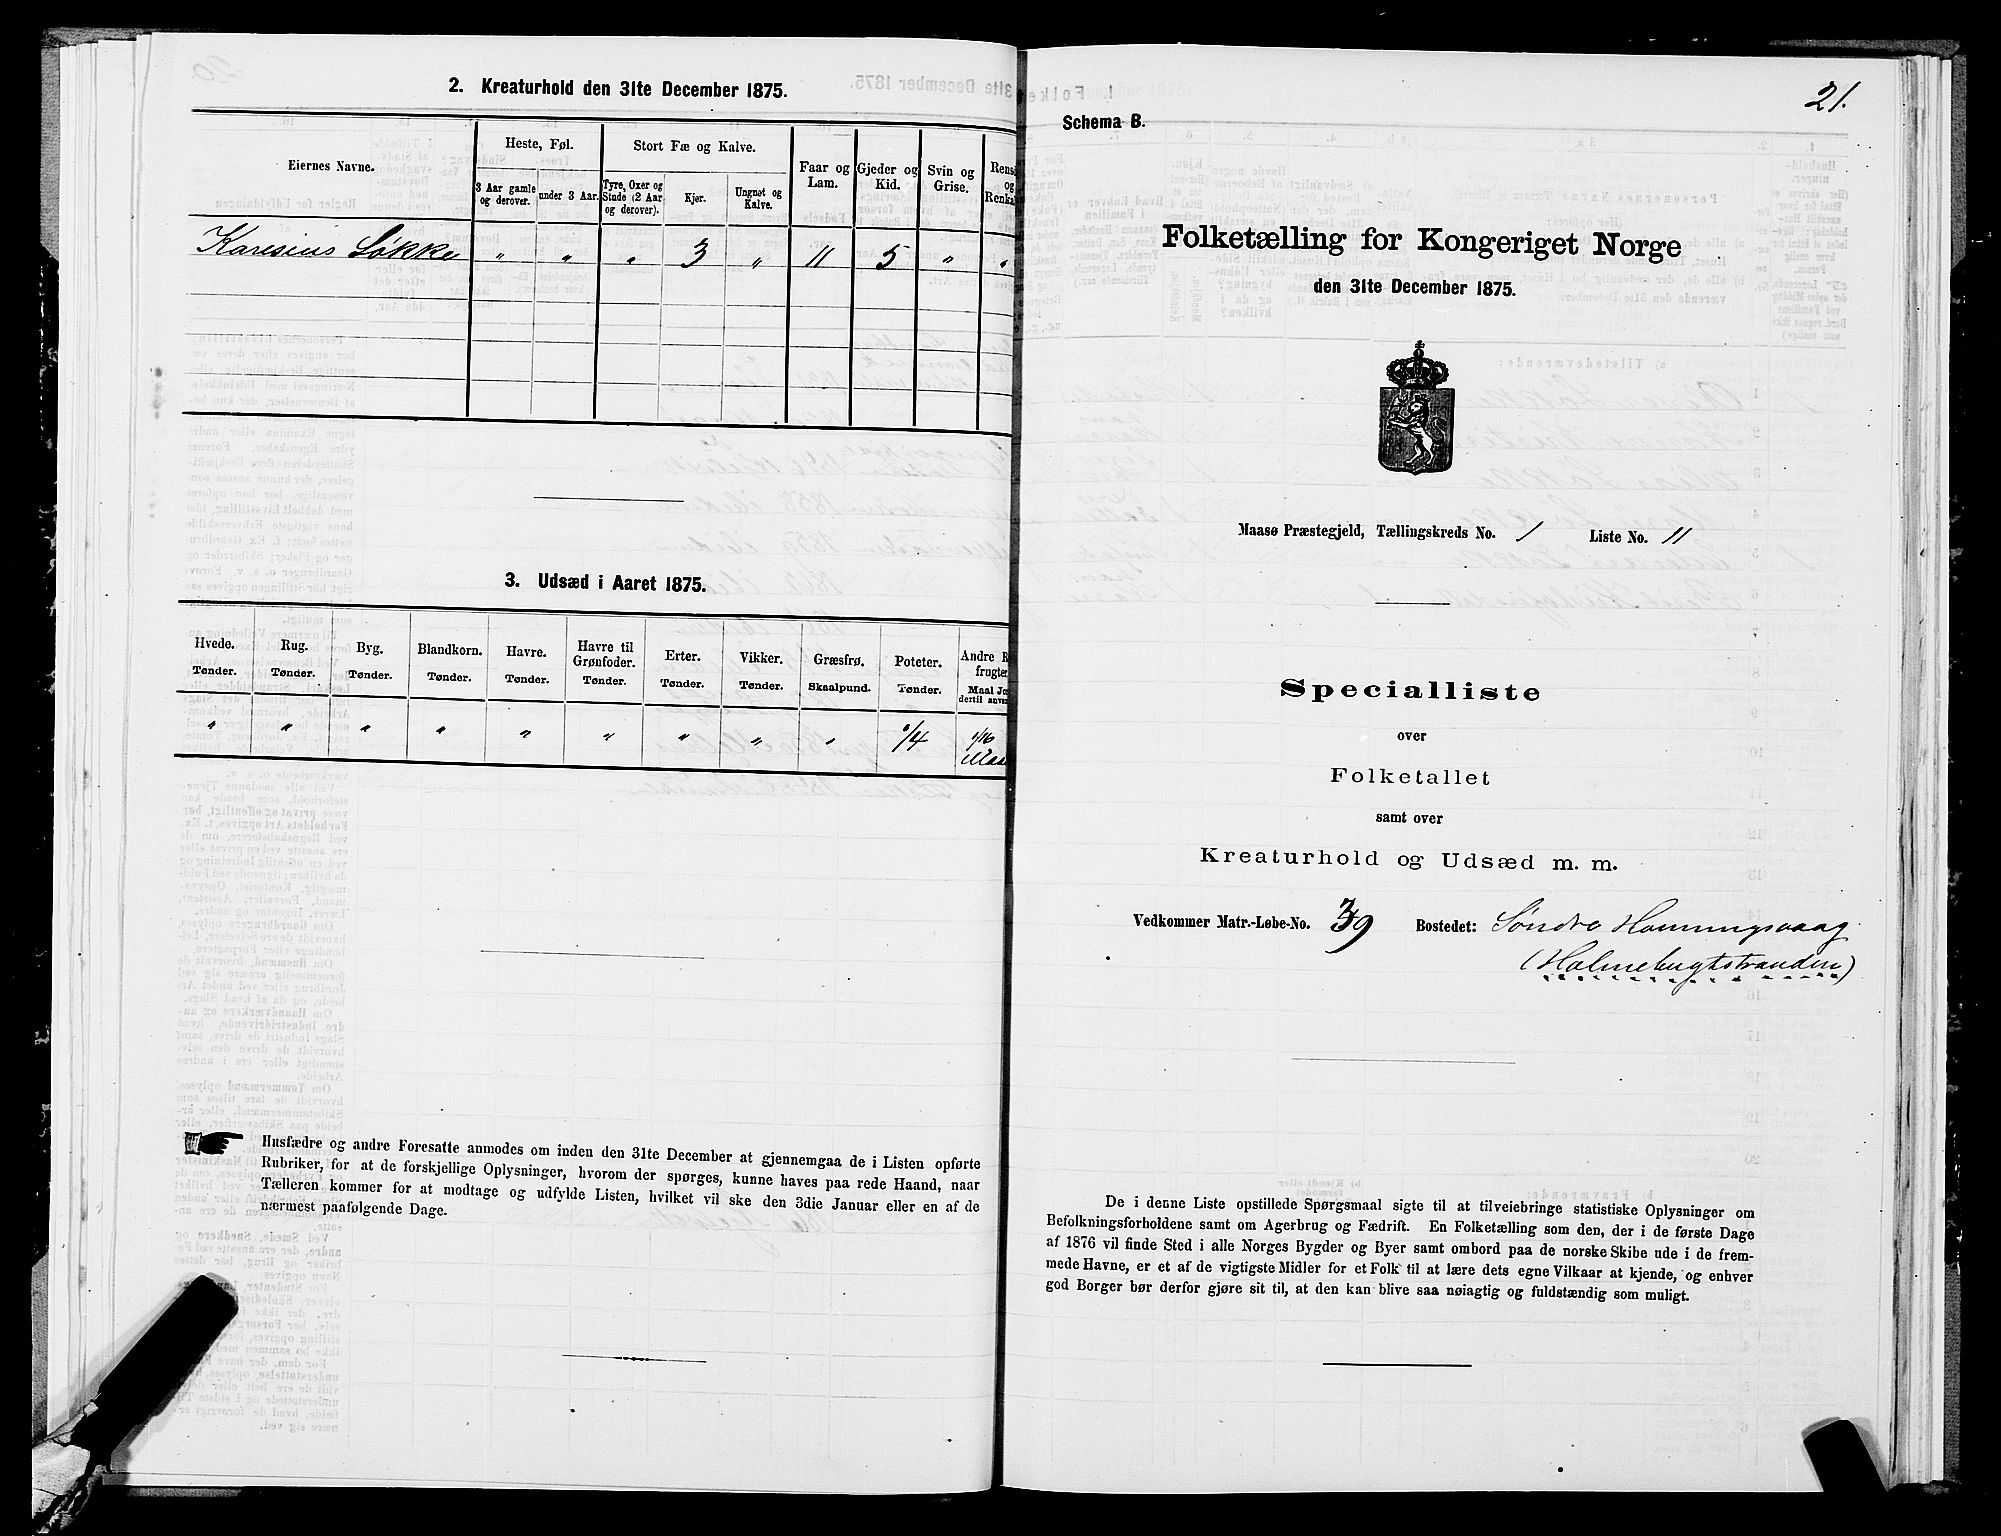 2. Kreaturhold den 31te December 1875.
Eiernes Navne.
Heste, Føl.
Stort Fæ og Kalve.
Faar og Lam.
Gjeder og Kid.
Svin og Grise.
Rens
og
Renka
3 Aar gamle og derover.
under 3 Aar.
Tyre, Oxer og Stude (2 Aar og derover).
Kjer.
Ungnøt og Kalve.
Karesius Løkke " " " 3 " 11 5 " "
3. Udsæd i Aaret 1875.
Hvede. Rug. Byg. Blandkorn. Havre. Havre til Grønfoder. Erter. Vikker. Græsfrø. Poteter. Andre R
frugter
Tønder. Tønder. Tønder. Tønder. Tønder. Tønder. Tønder. Tønder. Skaalpund. Tønder. Maal Jo
dertil anve
" " " " " " " " " 1/4 1/16
Maa
Husfædre og andre Foresatte anmodes om inden den 31te December at gjennemgaa de i Listen opførte
Rubriker, for at de forskjellige Oplysninger, hvorom der spørges, kunne haves paa rede Haand, naar
Tælleren kommer for at modtage og udfylde Listen, hvilket vil ske den 3die Januar eller en af de
nærmest paafølgende Dage.
21.
Schema B.
Folketælling for Kongeriget Norge
den 31te December 1875.
Maasø Præstegjeld, Tællingskreds No. 1 Liste No. 11
Specialliste
over
Folketallet
samt over
Kreaturhold og Udsæd m. m.
Vedkommer Matr.-Løbe-No. 39 Bostedet: Søndre Honningsvaag
(Holmebugtstranden)
De i denne Liste opstillede Spørgsmaal sigte til at tilveiebringe statistiske Oplysninger om
Befolkningsforholdene samt om Agerbrug og Fædrift. En Folketælling som den, der i de første Dage
af 1876 vil finde Sted i alle Norges Bygder og Byer samt ombord paa de norske Skibe ude i de frem-
mede Havne, er et af de vigtigste Midler for et Folk til at lære dets egne Vilkaar at kjende, og enhver
god Borger bør derfor gjøre sit til, at den kan blive saa nøiagtig og fuldstændig som muligt.